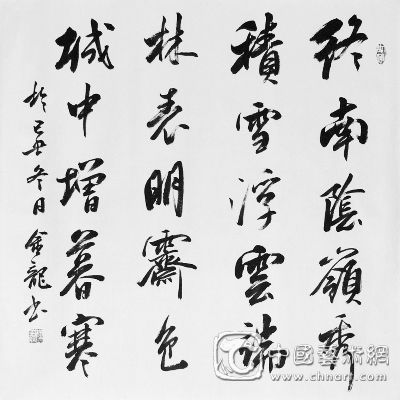 終南陰嶺秀
積雪浮雲端
林表明霽色
城中增暮寒
於己丑冬日金龍书
中國藝術網
www.chnart.com